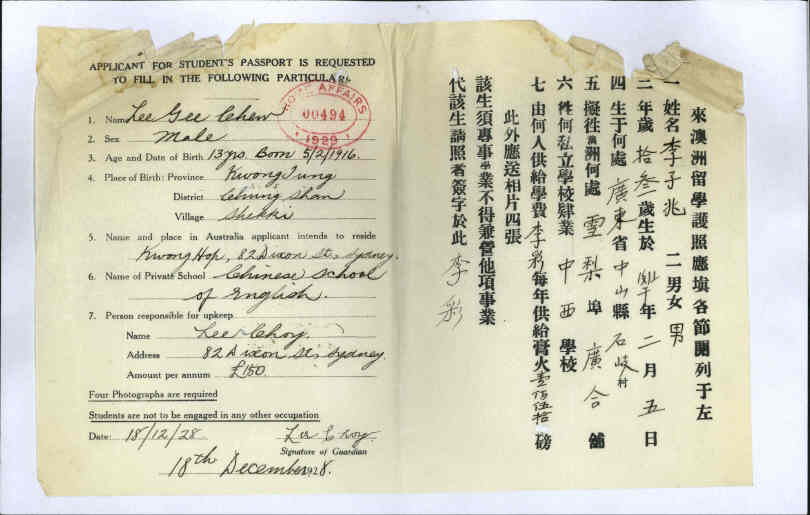 APPLICANT FOR STUDENT'S PASSPORT IS REQUESTED
TO FILL IN THE FOLLOWING PARTICULARS.
HOME AFFAIRS
00494
1929
1. Name Lee Gee Chew
2. Sex Male
3. Age and Date of Birth 13 yrs. Born 5/2/1916.
4. Place of Birth: Province Kwong Tung
District Chung Shan
Village Shekki
5. Name and place in Australia applicant intends to reside
Kwong Hop, 82 Dixon St., Sydney.
6. Name of Private School Chinese School
of English.
7. Person responsible for upkeep
Name Lee Choy.
Address 82 Dixon St., Sydney
Amount per annum £150
Four Photographs are required
Students are not to be engaged in any other occupation
Date: 18/12/28 Lee Choy.
Signature of Guardian
18th December 1928.
來澳洲留學護照應塡各節開列于左
一 姓名 李子兆 二 男女 男
三 年歲 拾叁 歲生於 年 二 月 五 日
四 生于何處 廣東 省 中山 縣 石岐 村
五 擬徃澳洲何處 雪梨 埠 廣合 舖
六 徃何私立學校肄業 中西 學校
七 由何人供給學費 李彩 每年供給膏火 壹佰伍拾 磅
此外應送相片四張
該生須專事學業不得兼營他項事業
代該生請照者簽字於此 李彩